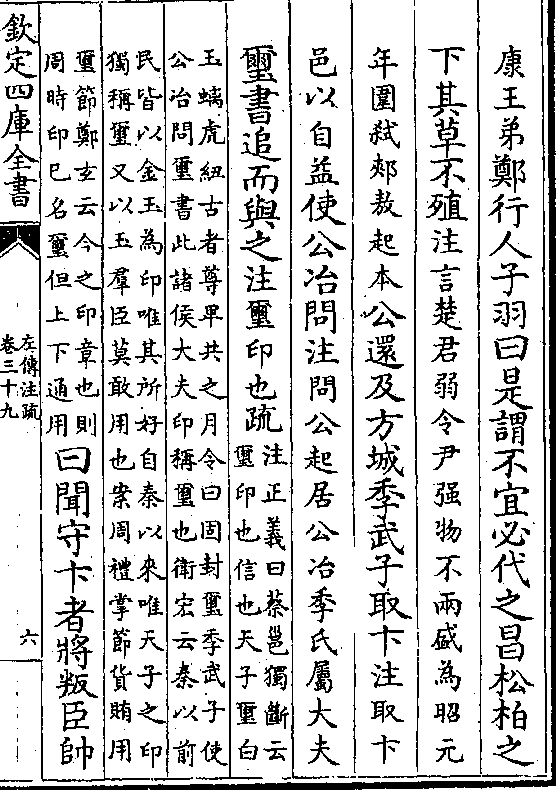 康王弟鄭行人子羽曰是謂不宜必代之昌松柏之
下其草不殖注言楚君弱令尹强物不兩盛為昭元
年圍弑郟敖起本公還及方城季武子取卞注取卞
邑以自益使公冶問注問公起居公冶季氏屬大夫
璽書追而與之注璽印也疏
注正義曰蔡邕獨斷云
璽印也信也天子璽白
玉螭虎紐古者尊卑共之月令曰固封璽季武子使
公冶問璽書此諸侯大夫印稱璽也衛宏云秦以前
民皆以金玉為印唯其所好自秦以來唯天子之印
獨稱璽又以玉羣臣莫敢用也案周禮掌節貨賄用
璽節鄭玄云今之印章也則
周時印已名璽但上下通用
曰聞守卞者將叛臣帥
欽定四庫全書
左傳注疏
卷三十九
六